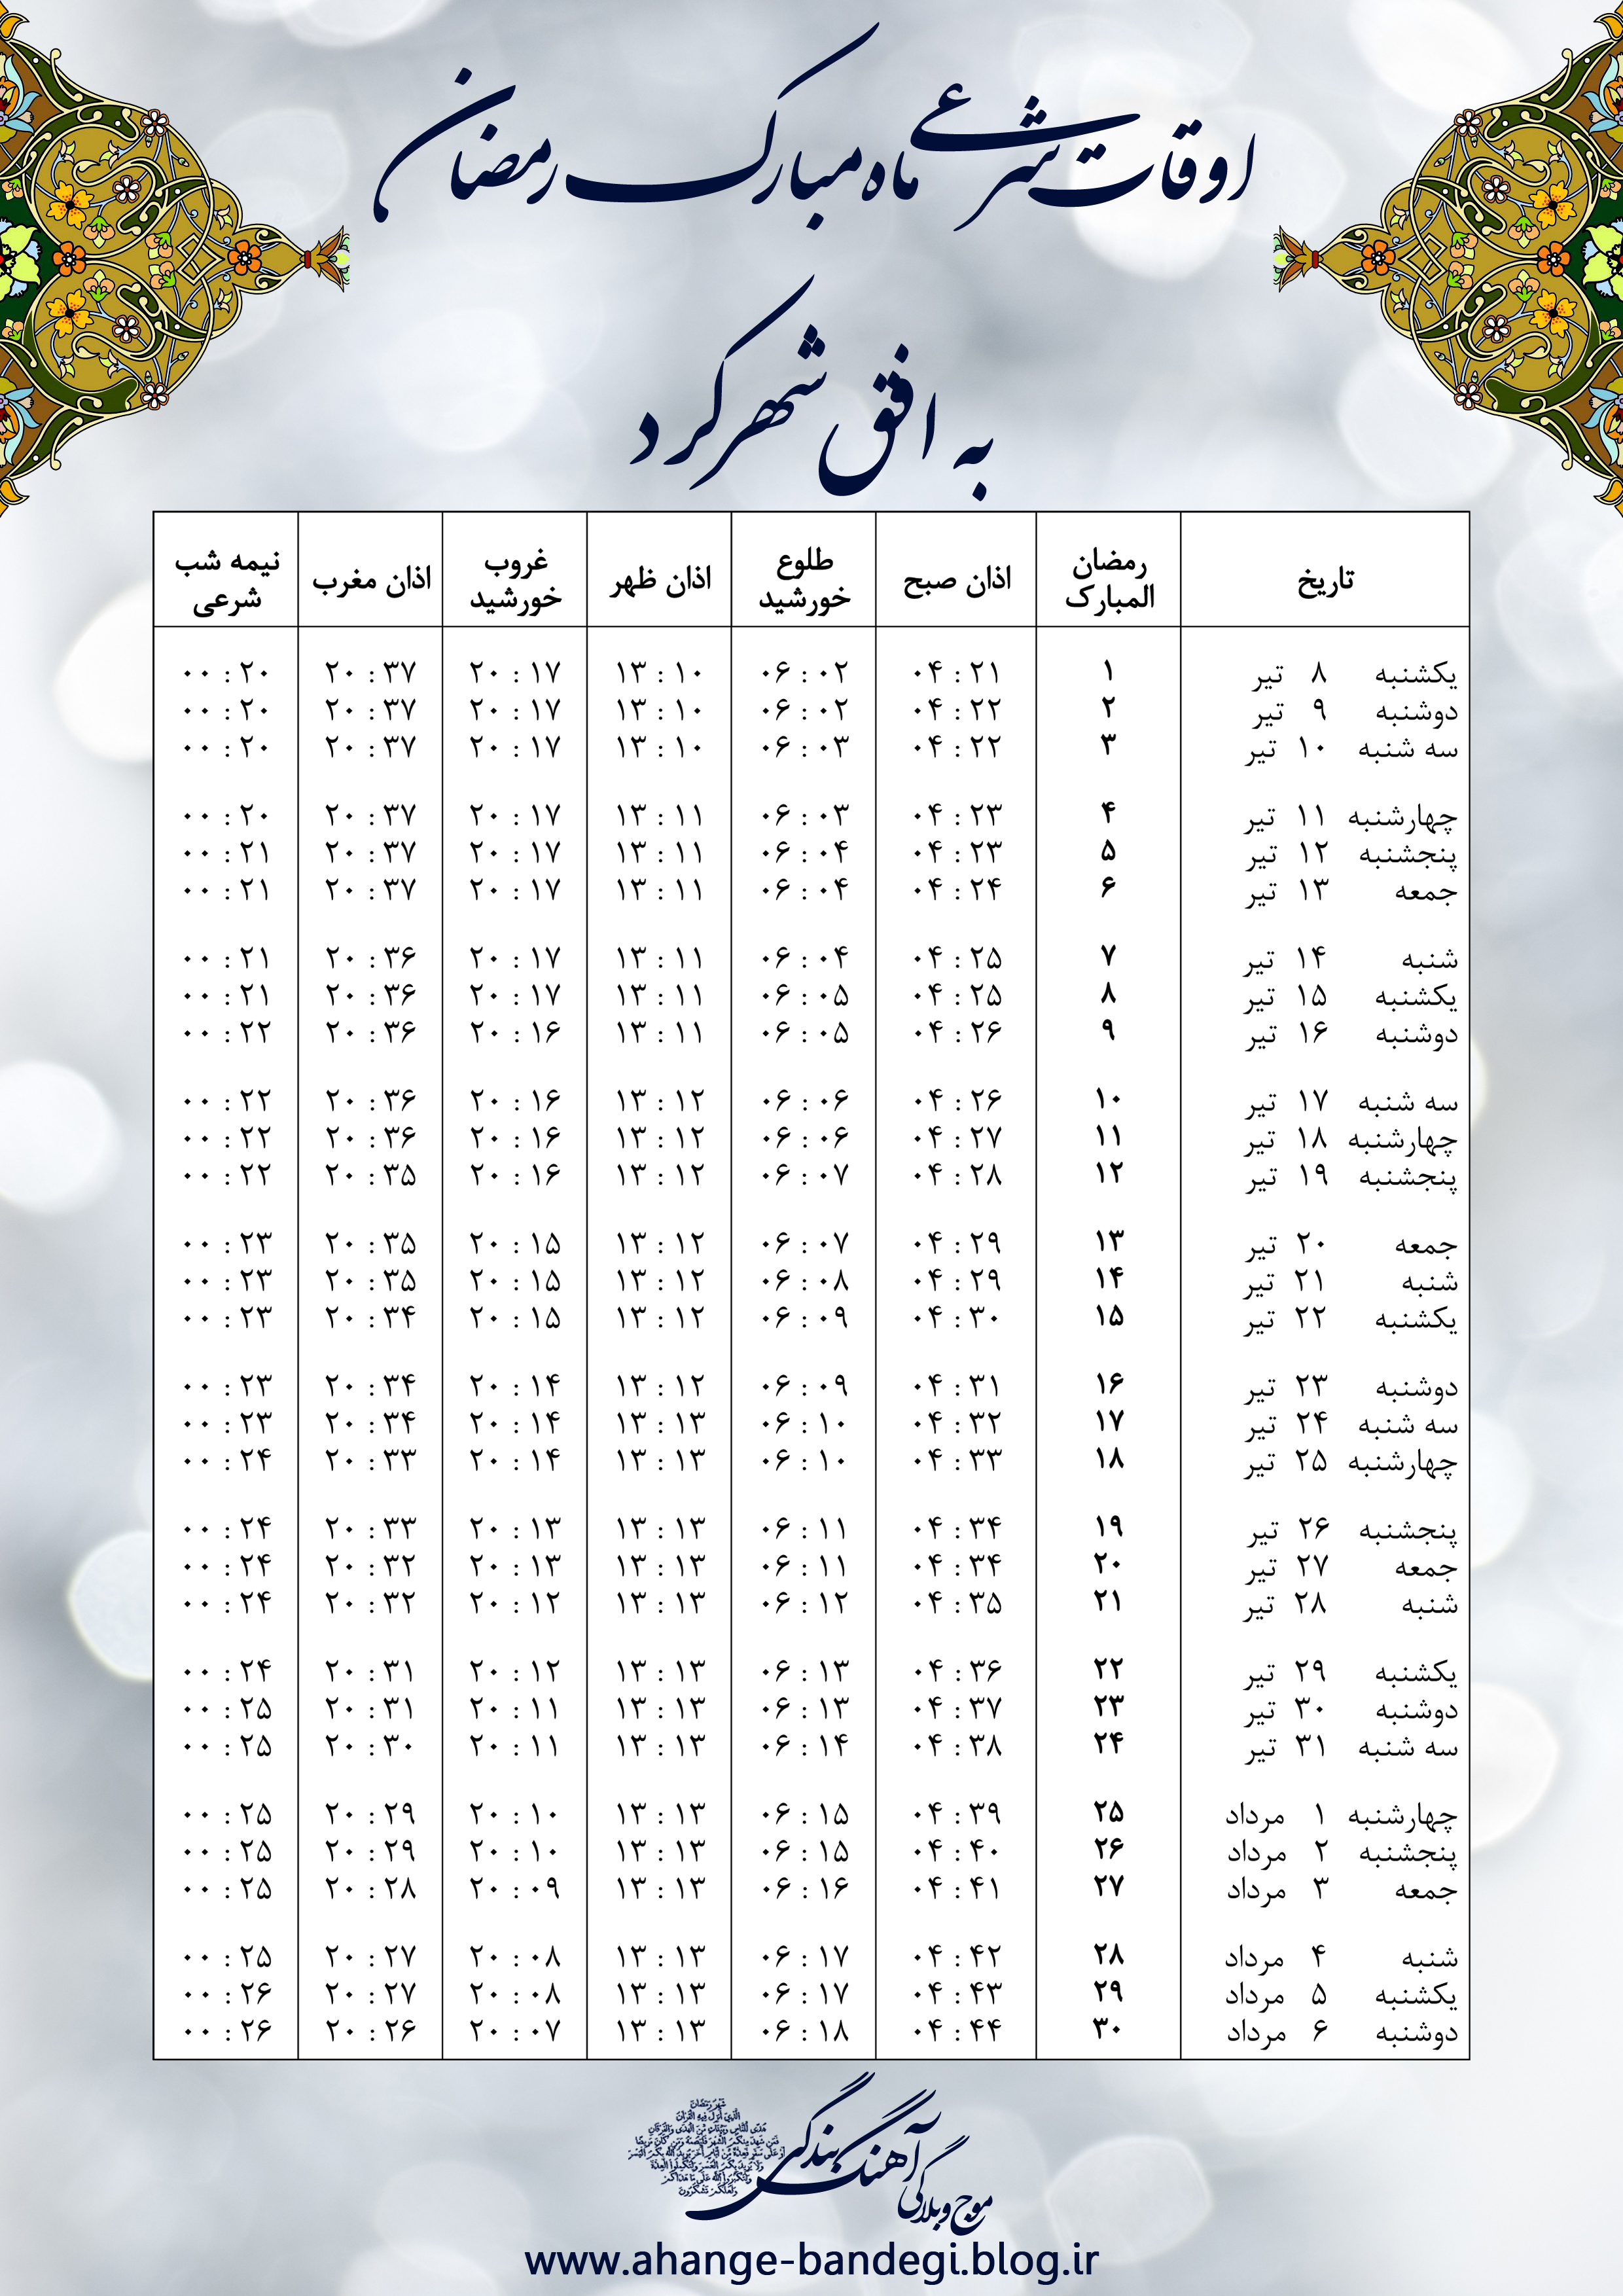 اوقات شرعی ماه مبارک رمضان
به افق شهرکرد
تاریخ رمضان المبارک اذان صبح طلوع خورشید اذان ظهر غروب خورشید اذان مغرب نیمه شب شرعی
یکشنبه ۸ تیر ۱ ۰۴:۲۱ ۰۶:۰۲ ۱۳:۱۰ ۲۰:۱۷ ۲۰:۳۷ ۰۰:۲۰
دوشنبه ۹ تیر ۲ ۰۴:۲۲ ۰۶:۰۲ ۱۳:۱۰ ۲۰:۱۷ ۲۰:۳۷ ۰۰:۲۰
سه شنبه ۱۰ تیر ۳ ۰۴:۲۲ ۰۶:۰۳ ۱۳:۱۰ ۲۰:۱۷ ۲۰:۳۷ ۰۰:۲۰
چهارشنبه ۱۱ تیر ۴ ۰۴:۲۳ ۰۶:۰۳ ۱۳:۱۱ ۲۰:۱۷ ۲۰:۳۷ ۰۰:۲۰
پنجشنبه ۱۲ تیر ۵ ۰۴:۲۳ ۰۶:۰۴ ۱۳:۱۱ ۲۰:۱۷ ۲۰:۳۷ ۰۰:۲۱
جمعه ۱۳ تیر ۶ ۰۴:۲۴ ۰۶:۰۴ ۱۳:۱۱ ۲۰:۱۷ ۲۰:۳۷ ۰۰:۲۱
شنبه ۱۴ تیر ۷ ۰۴:۲۵ ۰۶:۰۴ ۱۳:۱۱ ۲۰:۱۷ ۲۰:۳۶ ۰۰:۲۱
یکشنبه ۱۵ تیر ۸ ۰۴:۲۵ ۰۶:۰۵ ۱۳:۱۱ ۲۰:۱۷ ۲۰:۳۶ ۰۰:۲۱
دوشنبه ۱۶ تیر ۹ ۰۴:۲۶ ۰۶:۰۵ ۱۳:۱۱ ۲۰:۱۶ ۲۰:۳۶ ۰۰:۲۲
سه شنبه ۱۷ تیر ۱۰ ۰۴:۲۶ ۰۶:۰۶ ۱۳:۱۲ ۲۰:۱۶ ۲۰:۳۶ ۰۰:۲۲
چهارشنبه ۱۸ تیر ۱۱ ۰۴:۲۷ ۰۶:۰۶ ۱۳:۱۲ ۲۰:۱۶ ۲۰:۳۶ ۰۰:۲۲
پنجشنبه ۱۹ تیر ۱۲ ۰۴:۲۸ ۰۶:۰۷ ۱۳:۱۲ ۲۰:۱۶ ۲۰:۳۵ ۰۰:۲۲
جمعه ۲۰ تیر ۱۳ ۰۴:۲۹ ۰۶:۰۷ ۱۳:۱۲ ۲۰:۱۵ ۲۰:۳۵ ۰۰:۲۳
شنبه ۲۱ تیر ۱۴ ۰۴:۲۹ ۰۶:۰۸ ۱۳:۱۲ ۲۰:۱۵ ۲۰:۳۵ ۰۰:۲۳
یکشنبه ۲۲ تیر ۱۵ ۰۴:۳۰ ۰۶:۰۹ ۱۳:۱۲ ۲۰:۱۵ ۲۰:۳۴ ۰۰:۲۳
دوشنبه ۲۳ تیر ۱۶ ۰۴:۳۱ ۰۶:۰۹ ۱۳:۱۲ ۲۰:۱۴ ۲۰:۳۴ ۰۰:۲۳
سه شنبه ۲۴ تیر ۱۷ ۰۴:۳۲ ۰۶:۱۰ ۱۳:۱۳ ۲۰:۱۴ ۲۰:۳۴ ۰۰:۲۳
چهارشنبه ۲۵ تیر ۱۸ ۰۴:۳۳ ۰۶:۱۰ ۱۳:۱۳ ۲۰:۱۴ ۲۰:۳۳ ۰۰:۲۴
پنجشنبه ۲۶ تیر ۱۹ ۰۴:۳۴ ۰۶:۱۱ ۱۳:۱۳ ۲۰:۱۳ ۲۰:۳۳ ۰۰:۲۴
جمعه ۲۷ تیر ۲۰ ۰۴:۳۴ ۰۶:۱۱ ۱۳:۱۳ ۲۰:۱۳ ۲۰:۳۲ ۰۰:۲۴
شنبه ۲۸ تیر ۲۱ ۰۴:۳۵ ۰۶:۱۲ ۱۳:۱۳ ۲۰:۱۲ ۲۰:۳۲ ۰۰:۲۴
یکشنبه ۲۹ تیر ۲۲ ۰۴:۳۶ ۰۶:۱۳ ۱۳:۱۳ ۲۰:۱۲ ۲۰:۳۱ ۰۰:۲۴
دوشنبه ۳۰ تیر ۲۳ ۰۴:۳۷ ۰۶:۱۳ ۱۳:۱۳ ۲۰:۱۱ ۲۰:۳۱ ۰۰:۲۵
سه شنبه ۳۱ تیر ۲۴ ۰۴:۳۸ ۰۶:۱۴ ۱۳:۱۳ ۲۰:۱۱ ۲۰:۳۰ ۰۰:۲۵
چهارشنبه ۱ مرداد ۲۵ ۰۴:۳۹ ۰۶:۱۵ ۱۳:۱۳ ۲۰:۱۰ ۲۰:۲۹ ۰۰:۲۵
پنجشنبه ۲ مرداد ۲۶ ۰۴:۴۰ ۰۶:۱۵ ۱۳:۱۳ ۲۰:۱۰ ۲۰:۲۹ ۰۰:۲۵
جمعه ۳ مرداد ۲۷ ۰۴:۴۱ ۰۶:۱۶ ۱۳:۱۳ ۲۰:۰۹ ۲۰:۲۸ ۰۰:۲۵
شنبه ۴ مرداد ۲۸ ۰۴:۴۲ ۰۶:۱۷ ۱۳:۱۳ ۲۰:۰۸ ۲۰:۲۷ ۰۰:۲۵
یکشنبه ۵ مرداد ۲۹ ۰۴:۴۳ ۰۶:۱۷ ۱۳:۱۳ ۲۰:۰۸ ۲۰:۲۷ ۰۰:۲۶
دوشنبه ۶ مرداد ۳۰ ۰۴:۴۴ ۰۶:۱۸ ۱۳:۱۳ ۲۰:۰۷ ۲۰:۲۶ ۰۰:۲۶
موج وبلاگی آهنگ بندگی
شهر رمضان
الذی انزل فیه القرآن
www.ahange-bandegi.blog.ir